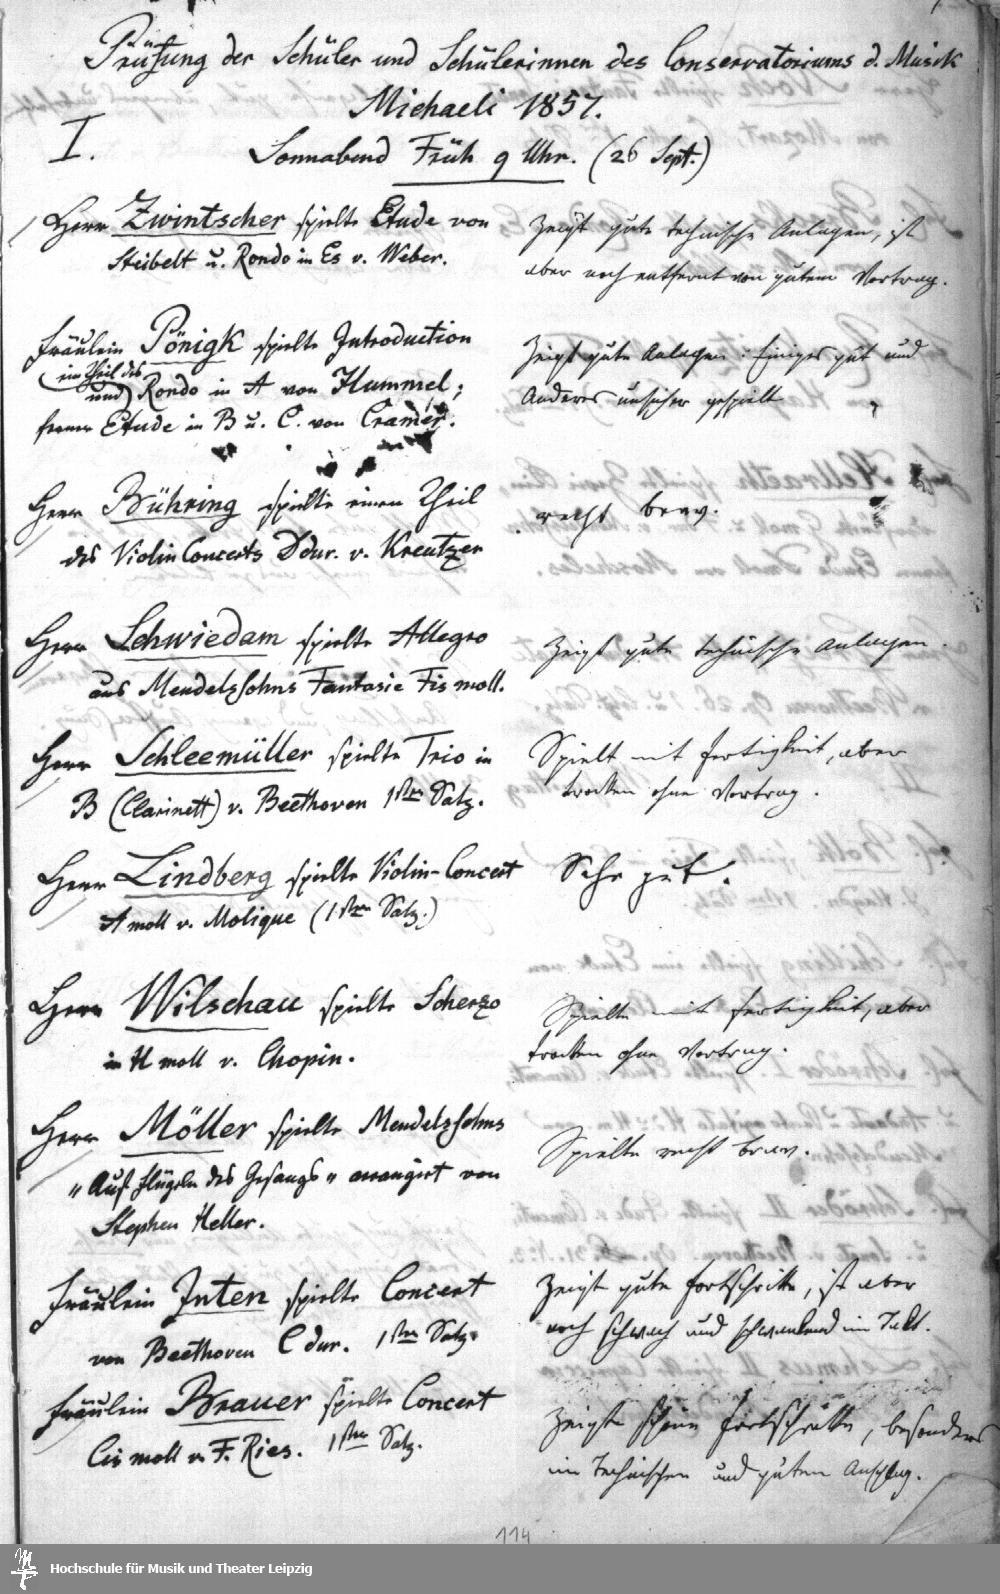 Prüfung der Schüler und Schülerinnen des Conservatoriums d. Musik
Michaeli 1857.
I.
Sonnabend Früh 9 Uhr. (26 Sept.)
Herr Zwintscher spielte Etude von
Steibelt u. Rondo in Es v. Weber.
Zeigt gute technische Anlagen, ist
aber noch entfernt von gutem Vortrag.
Fräulein Pönigk spielte Introduction
(ein Theil des
und) Rondo in A von Hummel;
ferner Etude in B u. C. von Cramer.
Zeigt gute Anlagen: Einiges gut und
Anderes unsicher gespielt
Herr Bühring spielte einen Theil
des Violin Concerts D dur. v. Kreutzer
recht brav.
Herr Schwiedam spielte Allegro
aus Mendelssohns Fantasie Fis moll.
Zeigt gute technische Anlagen.
Herr Schleemüller spielte Trio in
B (Clarinett) v. Beethoven 1ster Satz.
Spielt mit Fertigkeit, aber
trocken ohne Vortrag.
Herr Lindberg spielte Violin-Concert
A moll v. Molique (1ster Satz.)
Sehr gut.
Herr Wilschau spielte Scherzo
in H moll v. Chopin.
Spielte mit Fertigkeit, aber
trocken ohne Vortrag.
Herr Möller spielte Mendelssohns
"Auf Flügeln des Gesangs" arrangirt von
Stephen Heller.
Spielte recht brav.
Fräulein Inten spielte Concert
von Beethoven C dur. 1ster Satz.
Zeigt gute Fortschritte, ist aber
noch schwach und schwankend im Takt.
Fräulein Brauer spielte Concert
Cis moll v. F. Ries. 1ster Satz.
Zeigte schöne Fortschritte, besonders
im Technischen und guten Anschlag.
114
Hochschule für Musik und Theater Leipzig